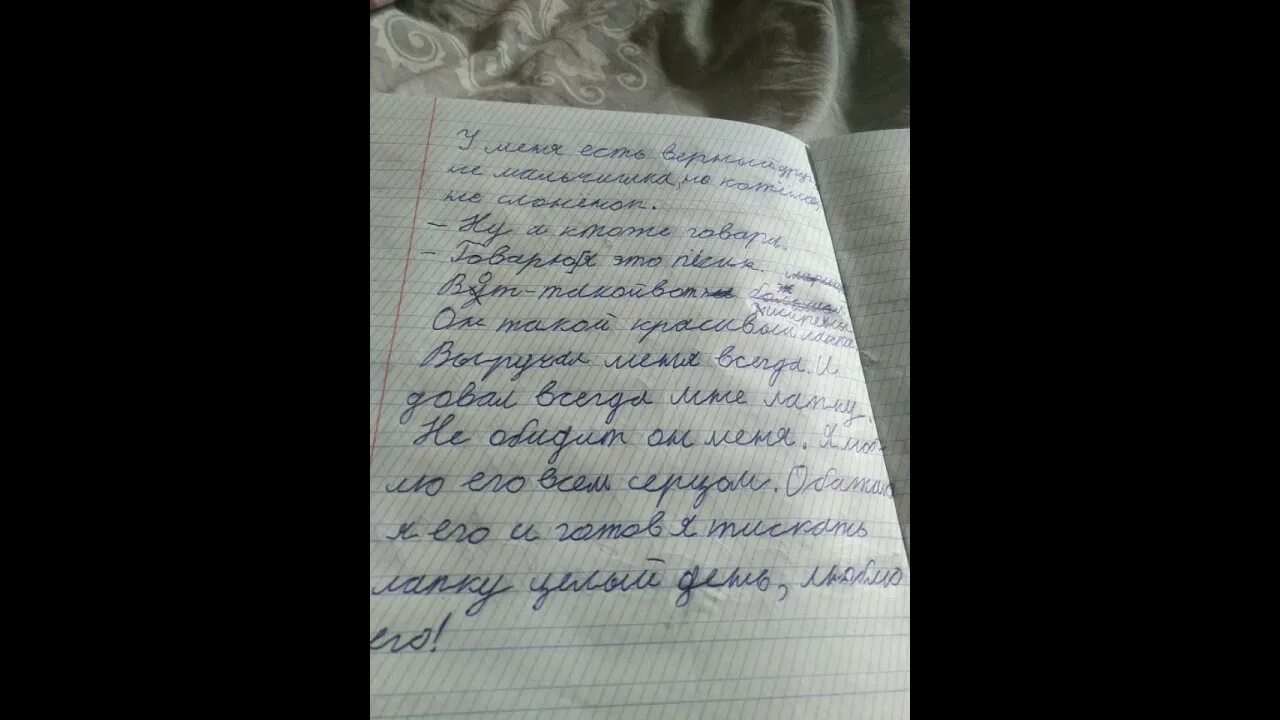 У меня есть верный друг
не мальчишка, не котёнок,
не слонёнок.
- Ну а ктоже говари.
- Говарю я это пёсик.
Вот-такойвот
Он такой красивый лапка
Выручал меня всегда. И
довал всегда мне лапку.
Не обидит он меня. Я люб-
лю его всем серцом. Обажаю
я его и готов я тискать
лапку целый день, люблю
его!